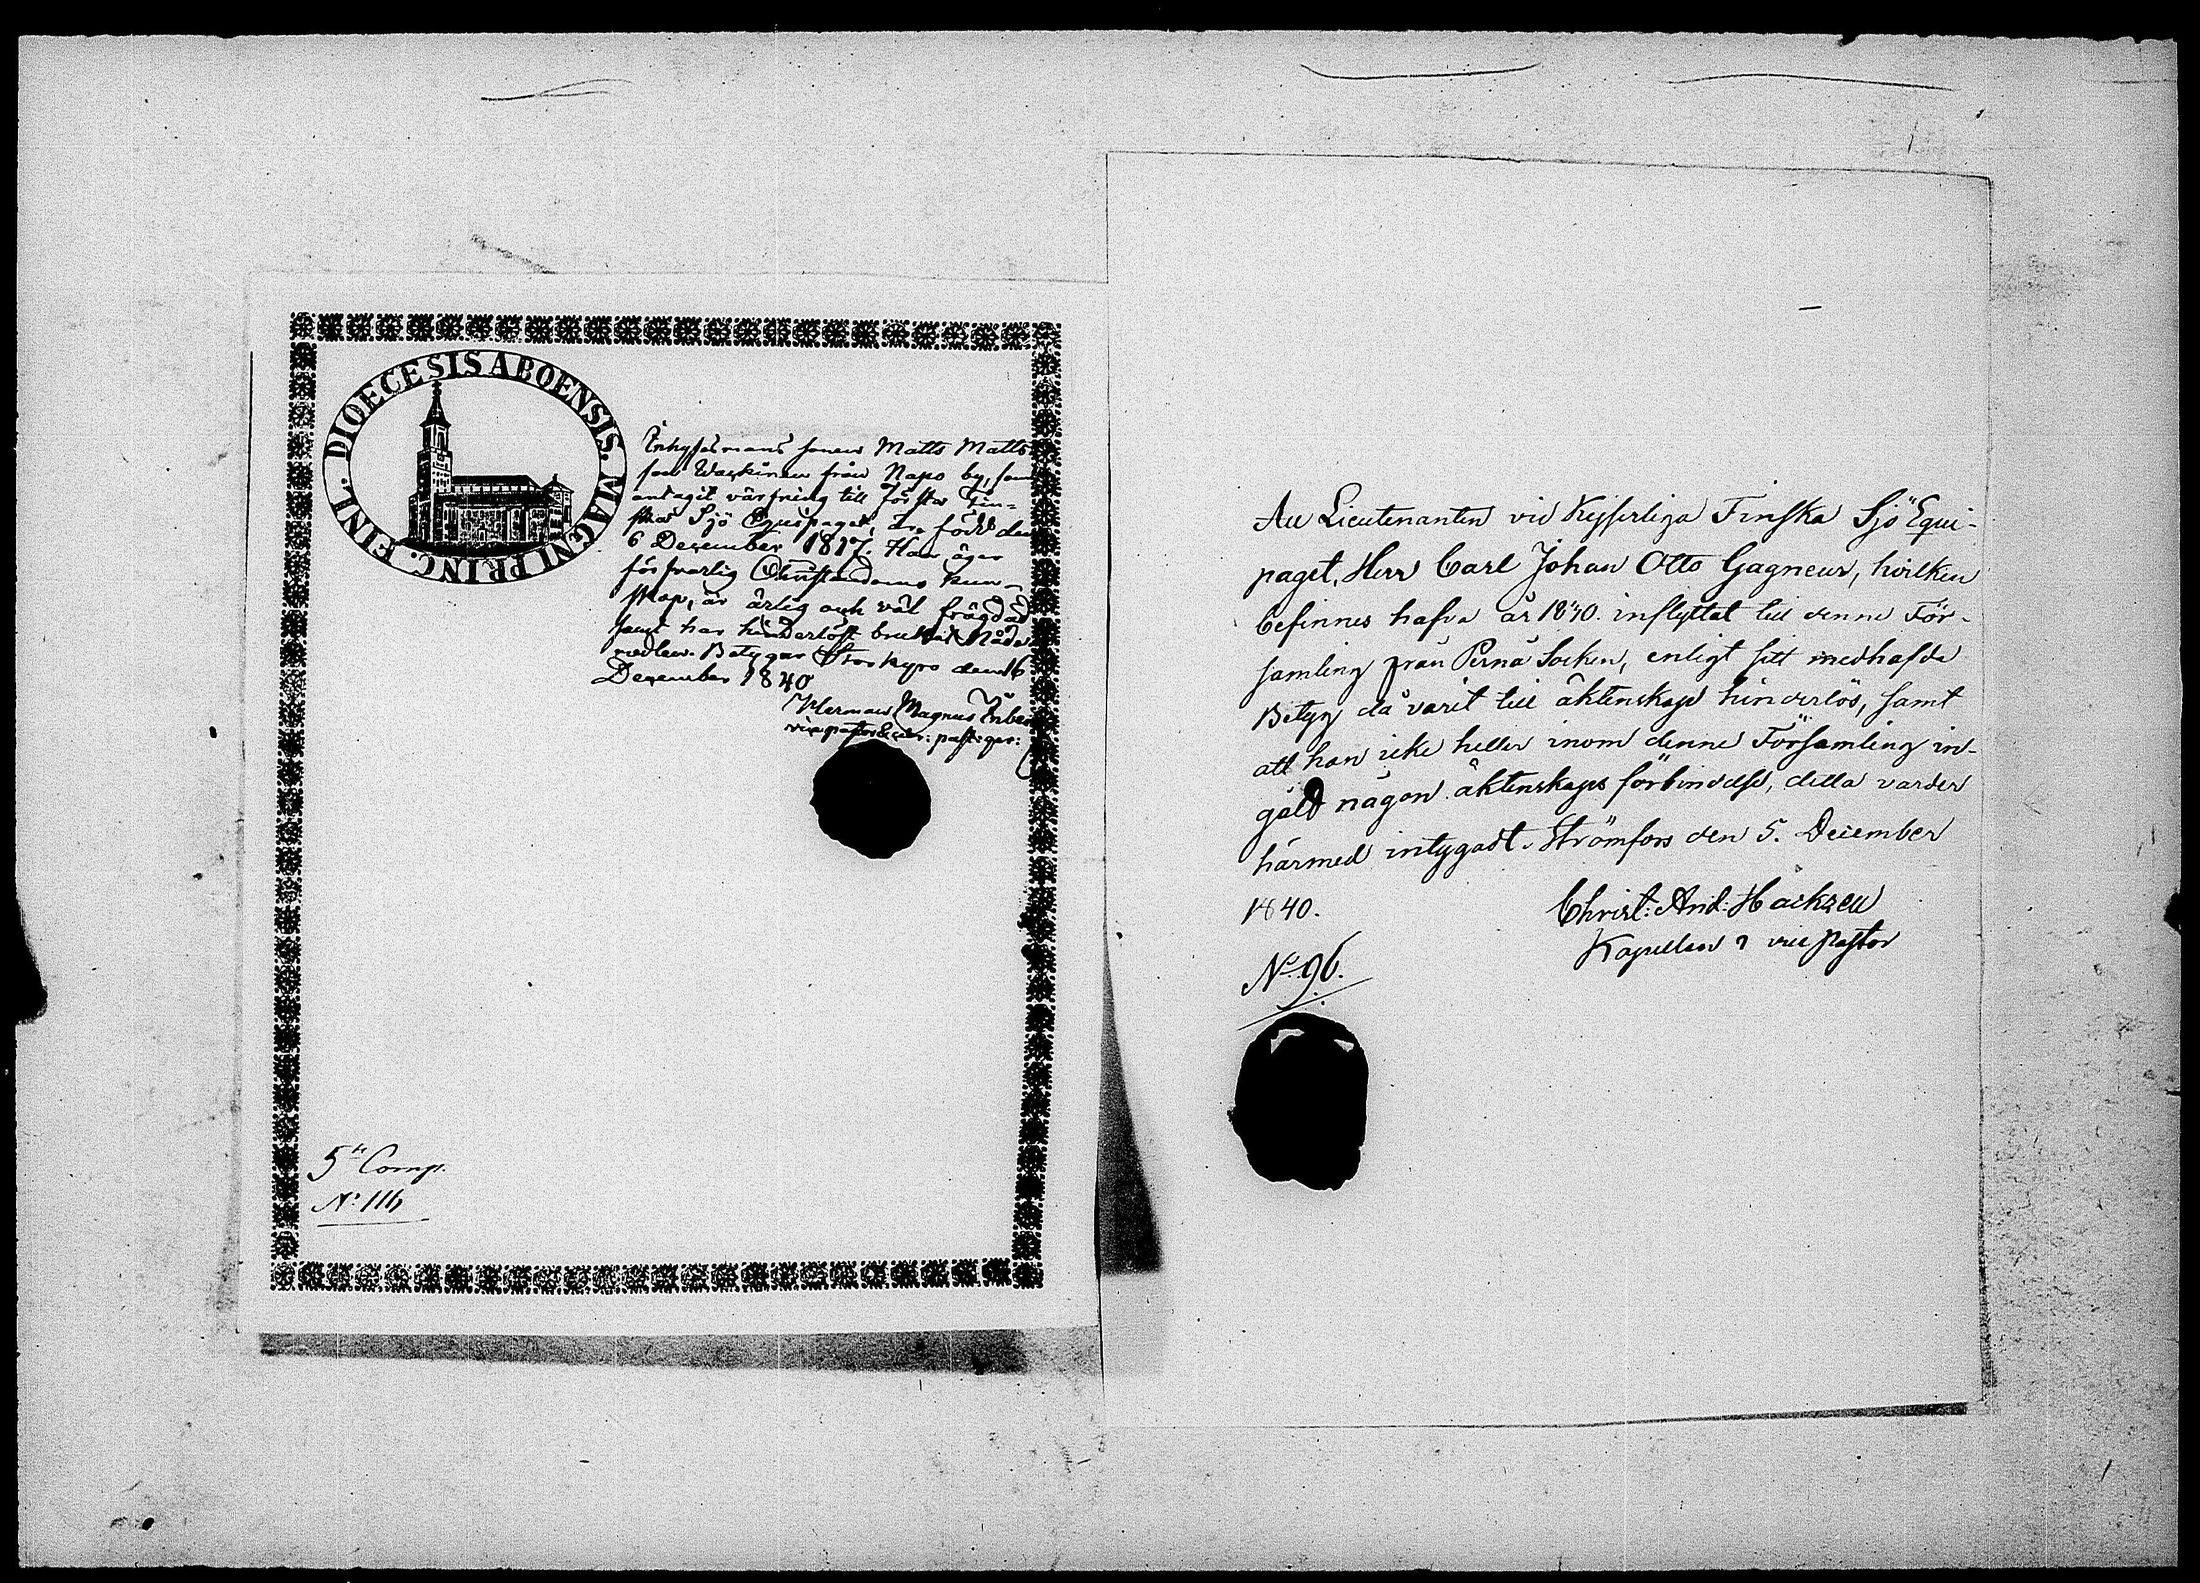 DIOECESIS ABOENSIS. MAGNI PRINC. FINL.
Inhysesmans sonen Matts Matts
son från Napo by, som
antagit värfning till Första Fin-
ska Sjö Equipaget, är född den
6 December 1817. Han äger
försvarlig Christendoms kun-
skap, är ärlig och väl frägdad
samt har hinderlöst brukat Nåde
medlen. Betygar Storkyro den 16
December 1840
Herman Magnus
vice pastor
5te Comp.
No 116
Att Lieutenanten vid Kejserliga Finska Sjö Equi-
paget, Herr Carl Johan Otto Gagneur, hvilken
befinnes hafva år 1840. inflyttat till denne För-
samling från Perna Socken, enligt sitt medhafde
Betyg då varit till äktenskap hinderlös, samt
att han icke heller inom denne Församling in-
gått någon äktenskaps förbindelse, detta varder
härmed intygadt. Strömfors den 5. December
1840.
Christ: And: Häckzell
Kapellan o vice Pastor
No. 96.